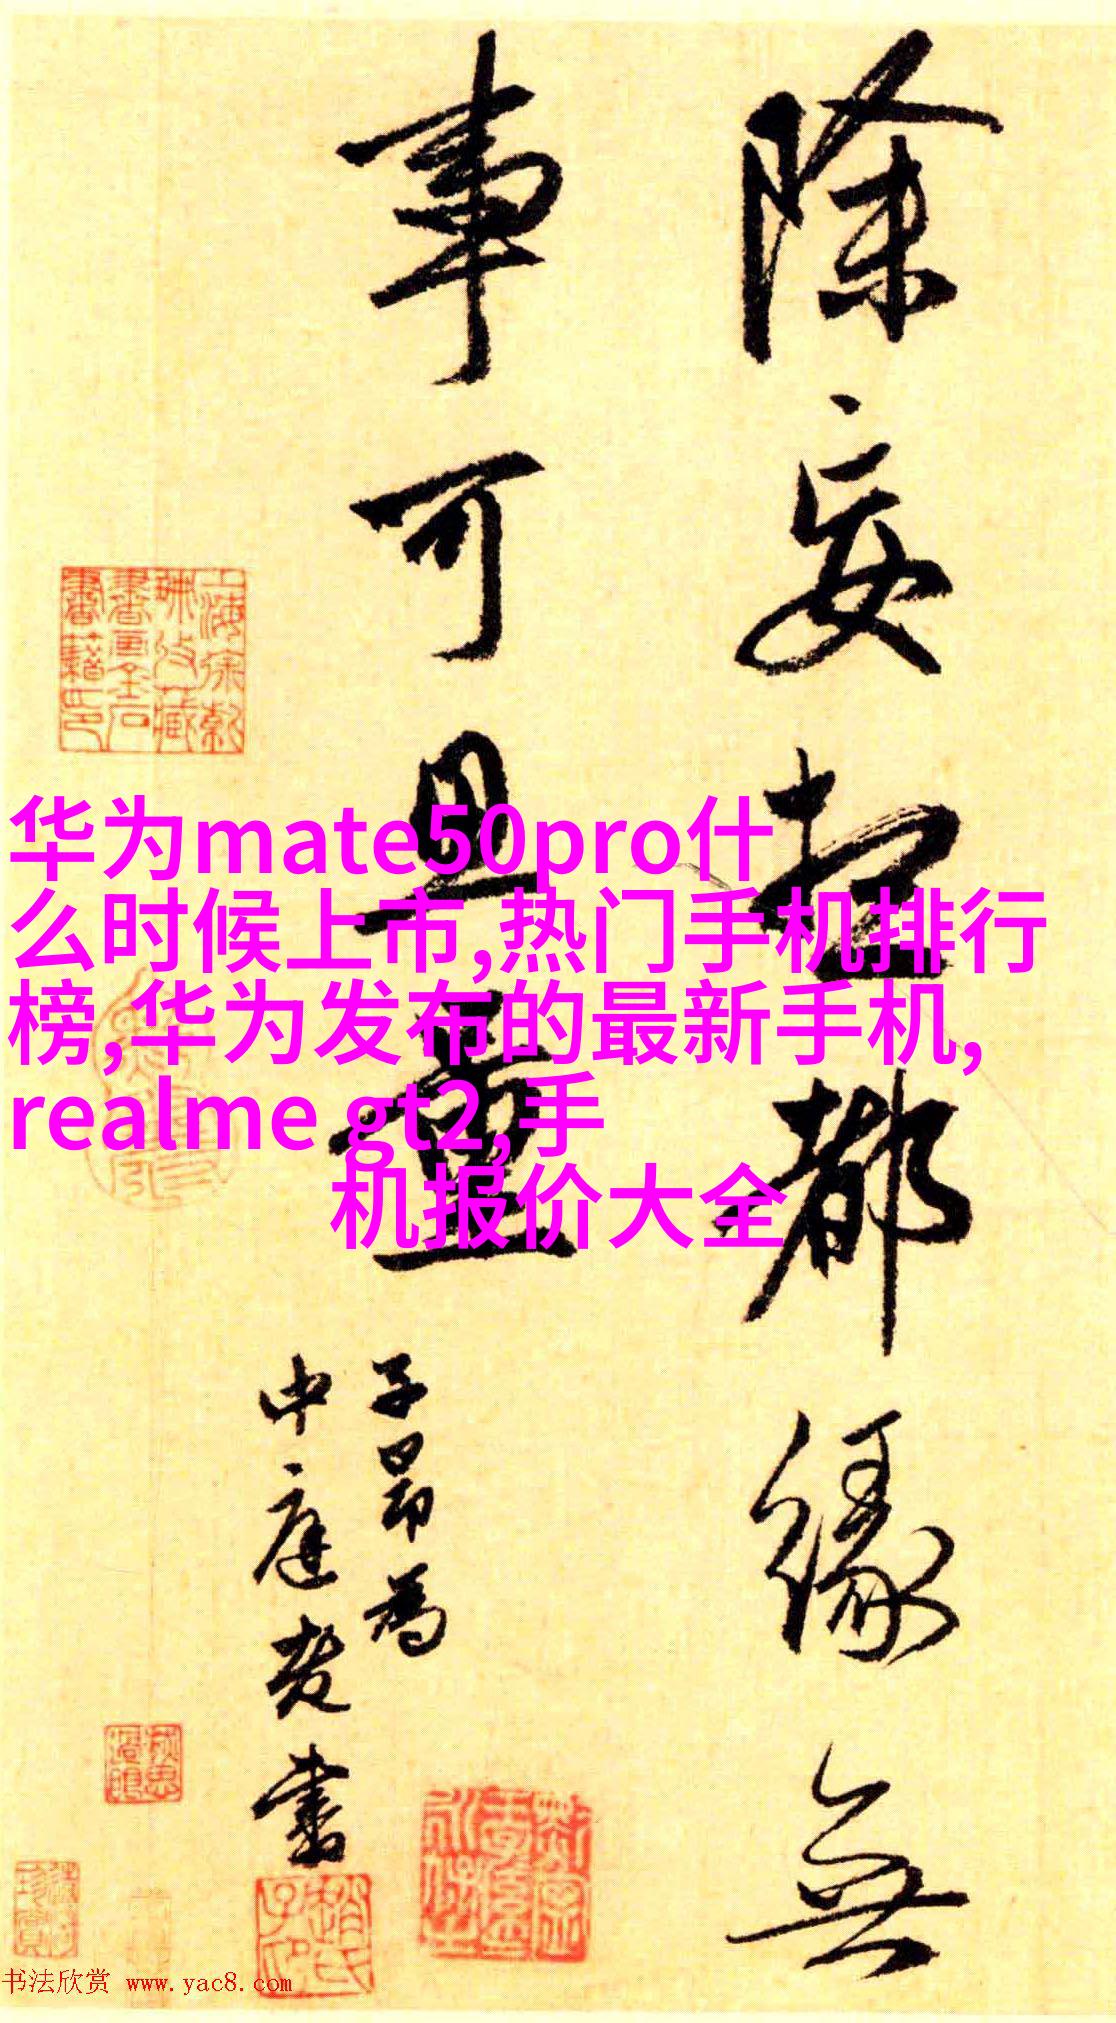 除妄想都緣無
事可思量
子昂為
中庭老書
华为mate50pro什
么时候上市,热门手机排行
榜,华为发布的最新手机,
realme gt2,手
机报价大全
书法欣赏 www.yac8.com